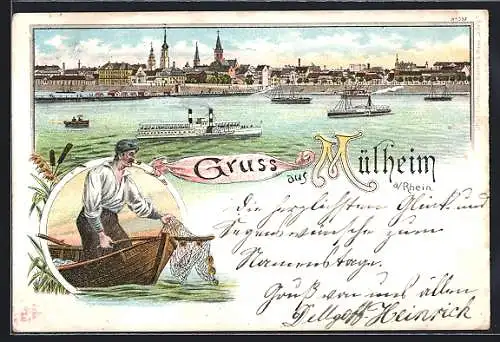 Gruss aus Mülheim
a/Rhein.
Die herzlichsten Glück und
Segenswünsche zum
Namenstage.
Gruß von uns allen
Heinrich